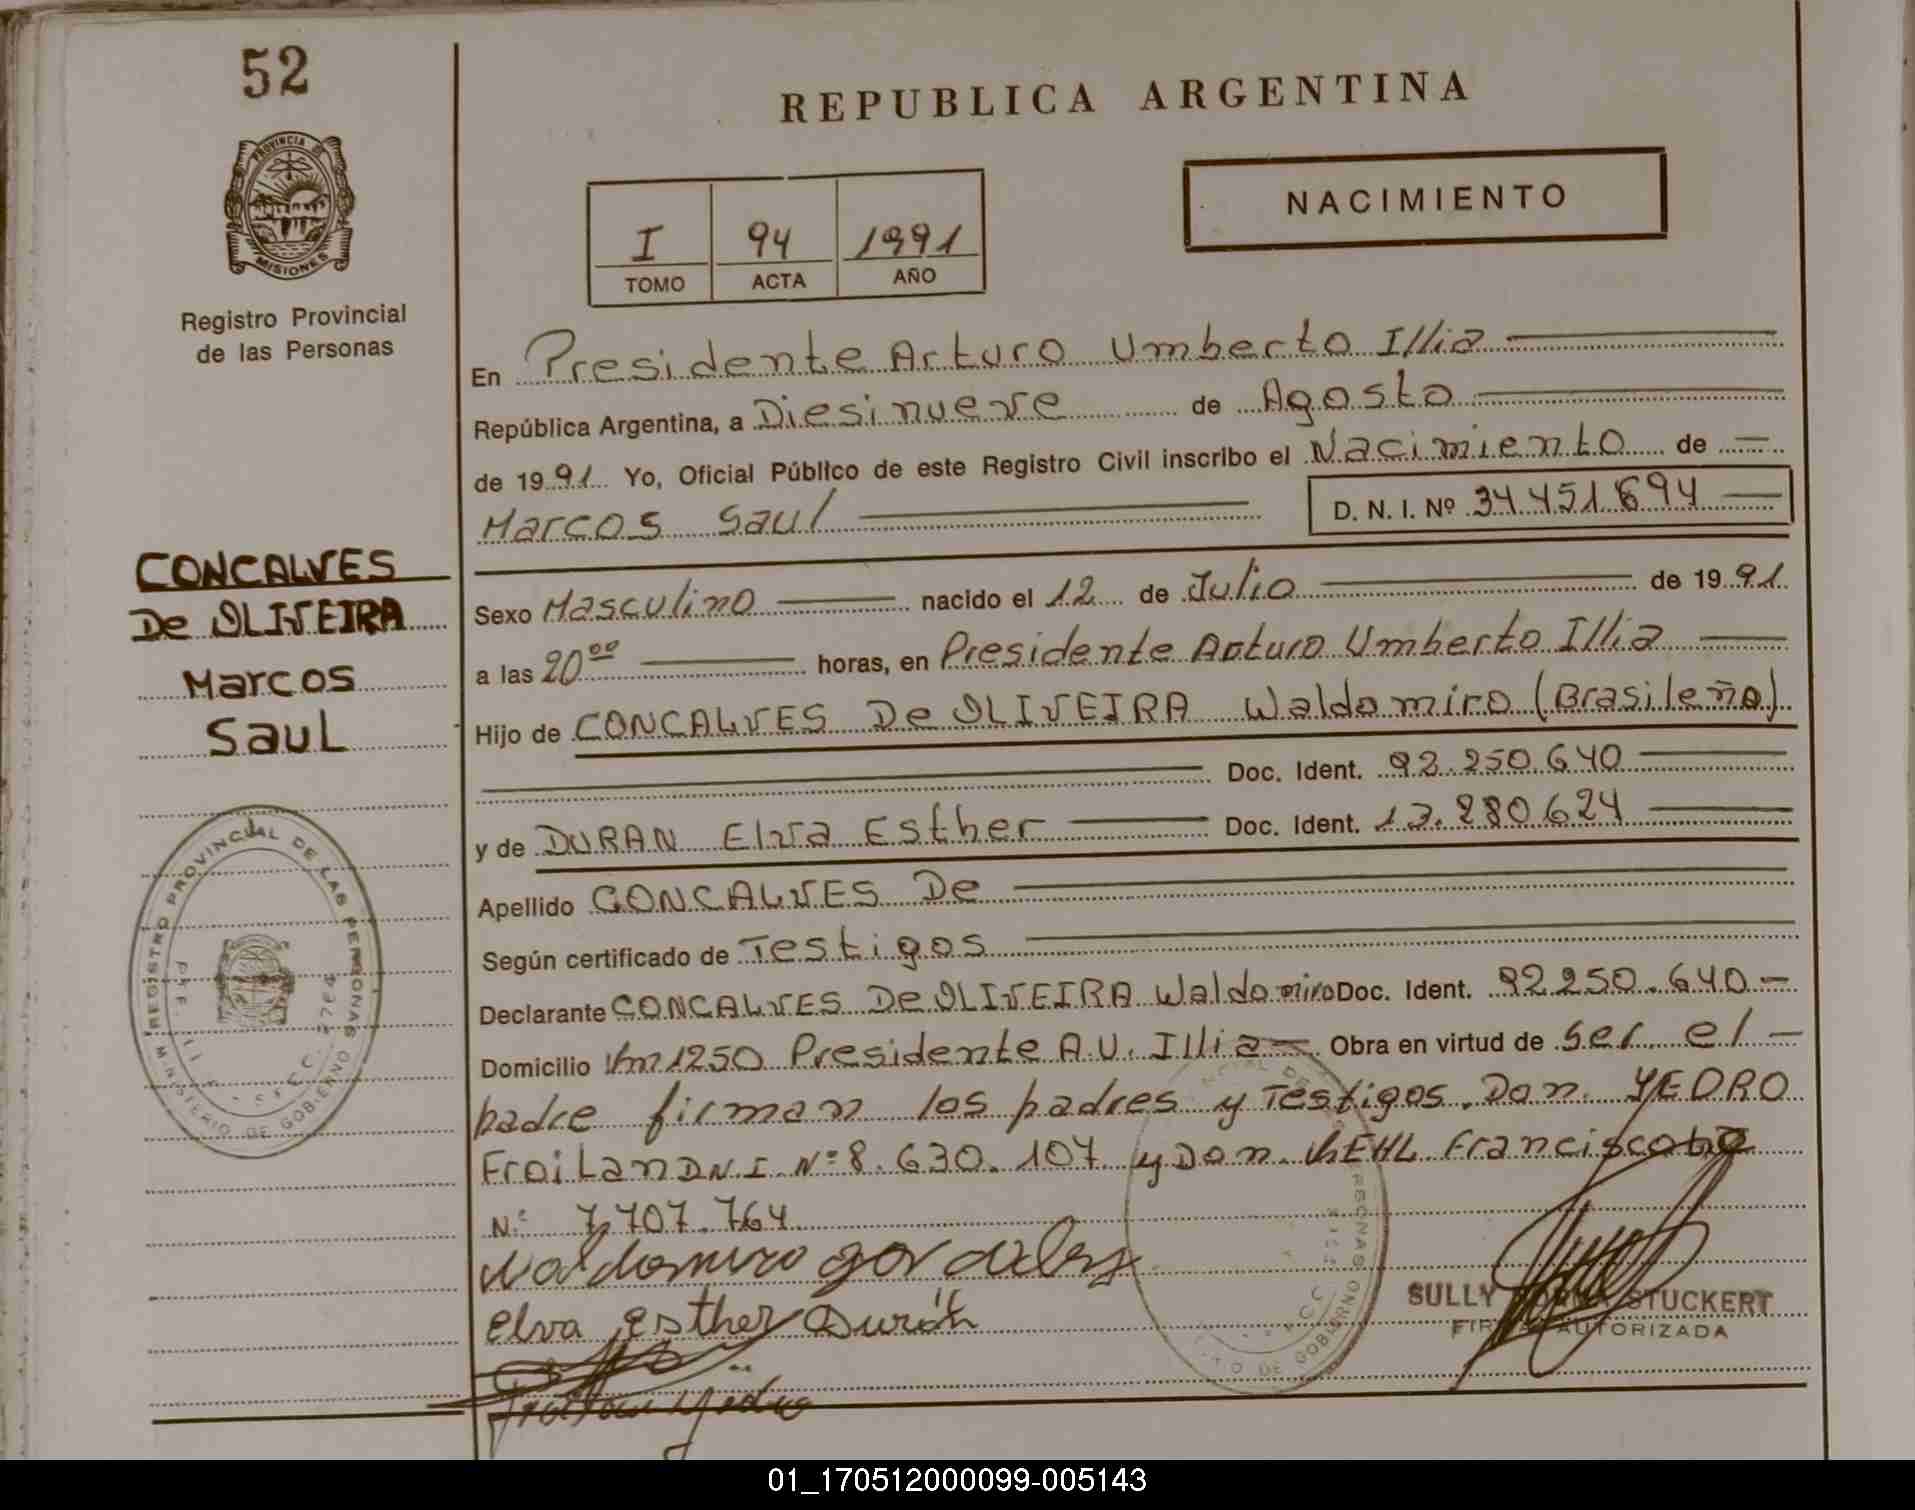 52
REPUBLICA ARGENTINA
PROVINCIA DE
MISIONES
Registro Provincial
de las Personas
I 94 1991
TOMO ACTA AÑO
NACIMIENTO
En Presidente Arturo Umberto Illia
República Argentina, a Diesinueve de Agosto
de 1991 Yo, Oficial Público de este Registro Civil inscribo el Nacimiento de
Marcos Saul D. N. I. Nº 34.451.694
CONCALVES
De OLIVEIRA
Marcos
SauL
Sexo Masculino nacido el 12 de Julio de 1991
a las 20⁰⁰ horas, en Presidente Arturo Umberto Illia
Hijo de CONCALVES De OLIVEIRA Waldomiro (Brasileño)
Doc. Ident. 92.250.640
y de DURAN Elva Esther Doc. Ident. 13.280.624
Apellido GONCALVES De
Según certificado de Testigos
Declarante CONCALVES De OLIVEIRA Waldomiro Doc. Ident. 92250.640
Domicilio Km 1250 Presidente A.U. Illia Obra en virtud de Ser el
padre firman los padres y Testigos. Don YEDRO
FroiLan D.N.I. Nº 8.630.107 y Don Francisco
Nº 7.707.764
REGISTRO PROVINCIAL DE LAS PERSONAS
MINISTERIO DE GOBIERNO
Waldomiro
Elva Esther Durán
SULLY STUCKERT
FIRMA AUTORIZADA
01_170512000099-005143